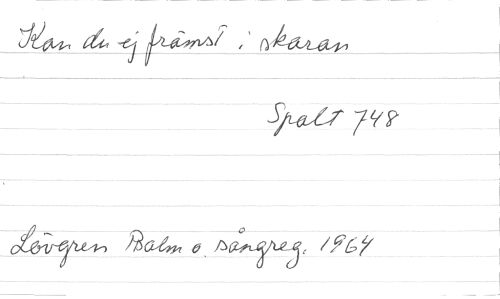 Kan du ej främst i skaran
Spalt 748
Lövgren Psalm o. sångreg. 1964